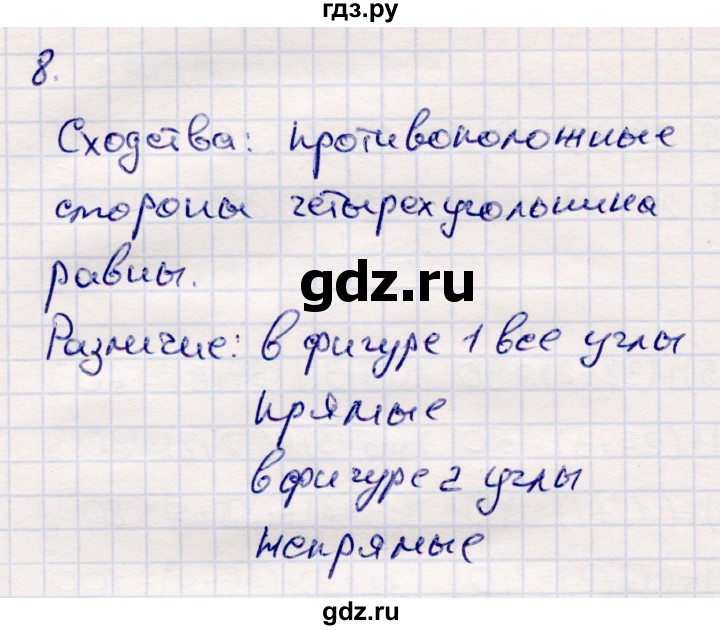 гдз.ру
8.
Сходства: противоположные
стороны четырехугольника
равны.
gdz.ru
Различие: в фигуре 1 все углы
прямые
в фигуре 2 углы
непрямые
gdz.ru